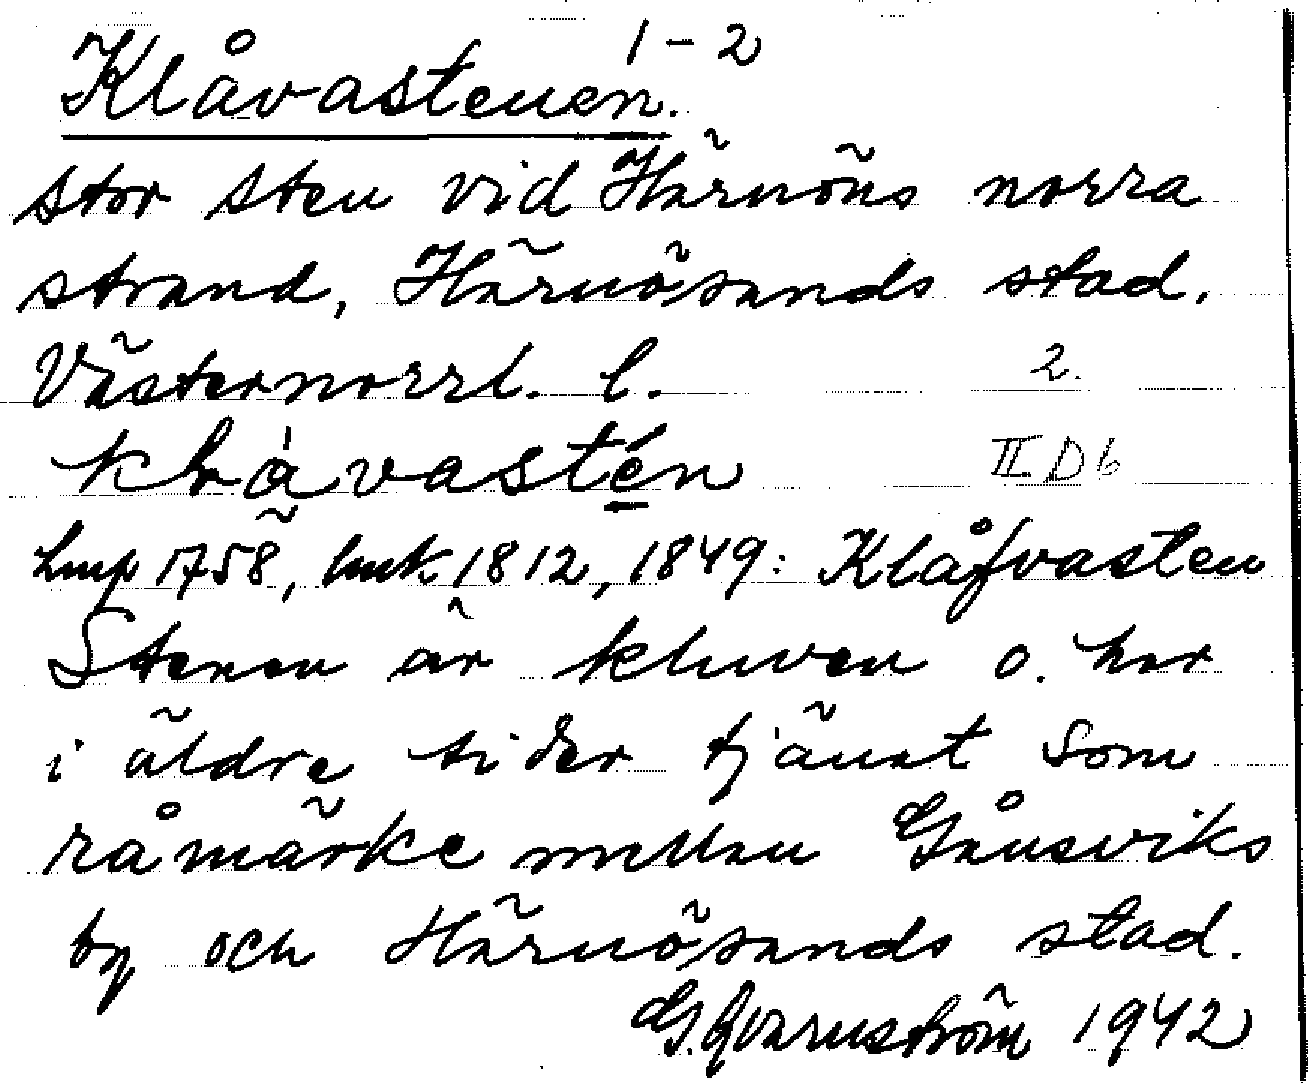 Klåvastenen. 1-2
stor sten vid Härnöns norra
strand, Härnösands stad.
Västernorrl. l. 2.
klȧvastén II D 6
Lmp 1758, lmk 1812, 1849: Klåfvasten
Stenen är kluven o. har
i äldre tider tjänat som
råmärke mellan Gånsviks
by och Härnösands stad.
G. Qvarnström 1942